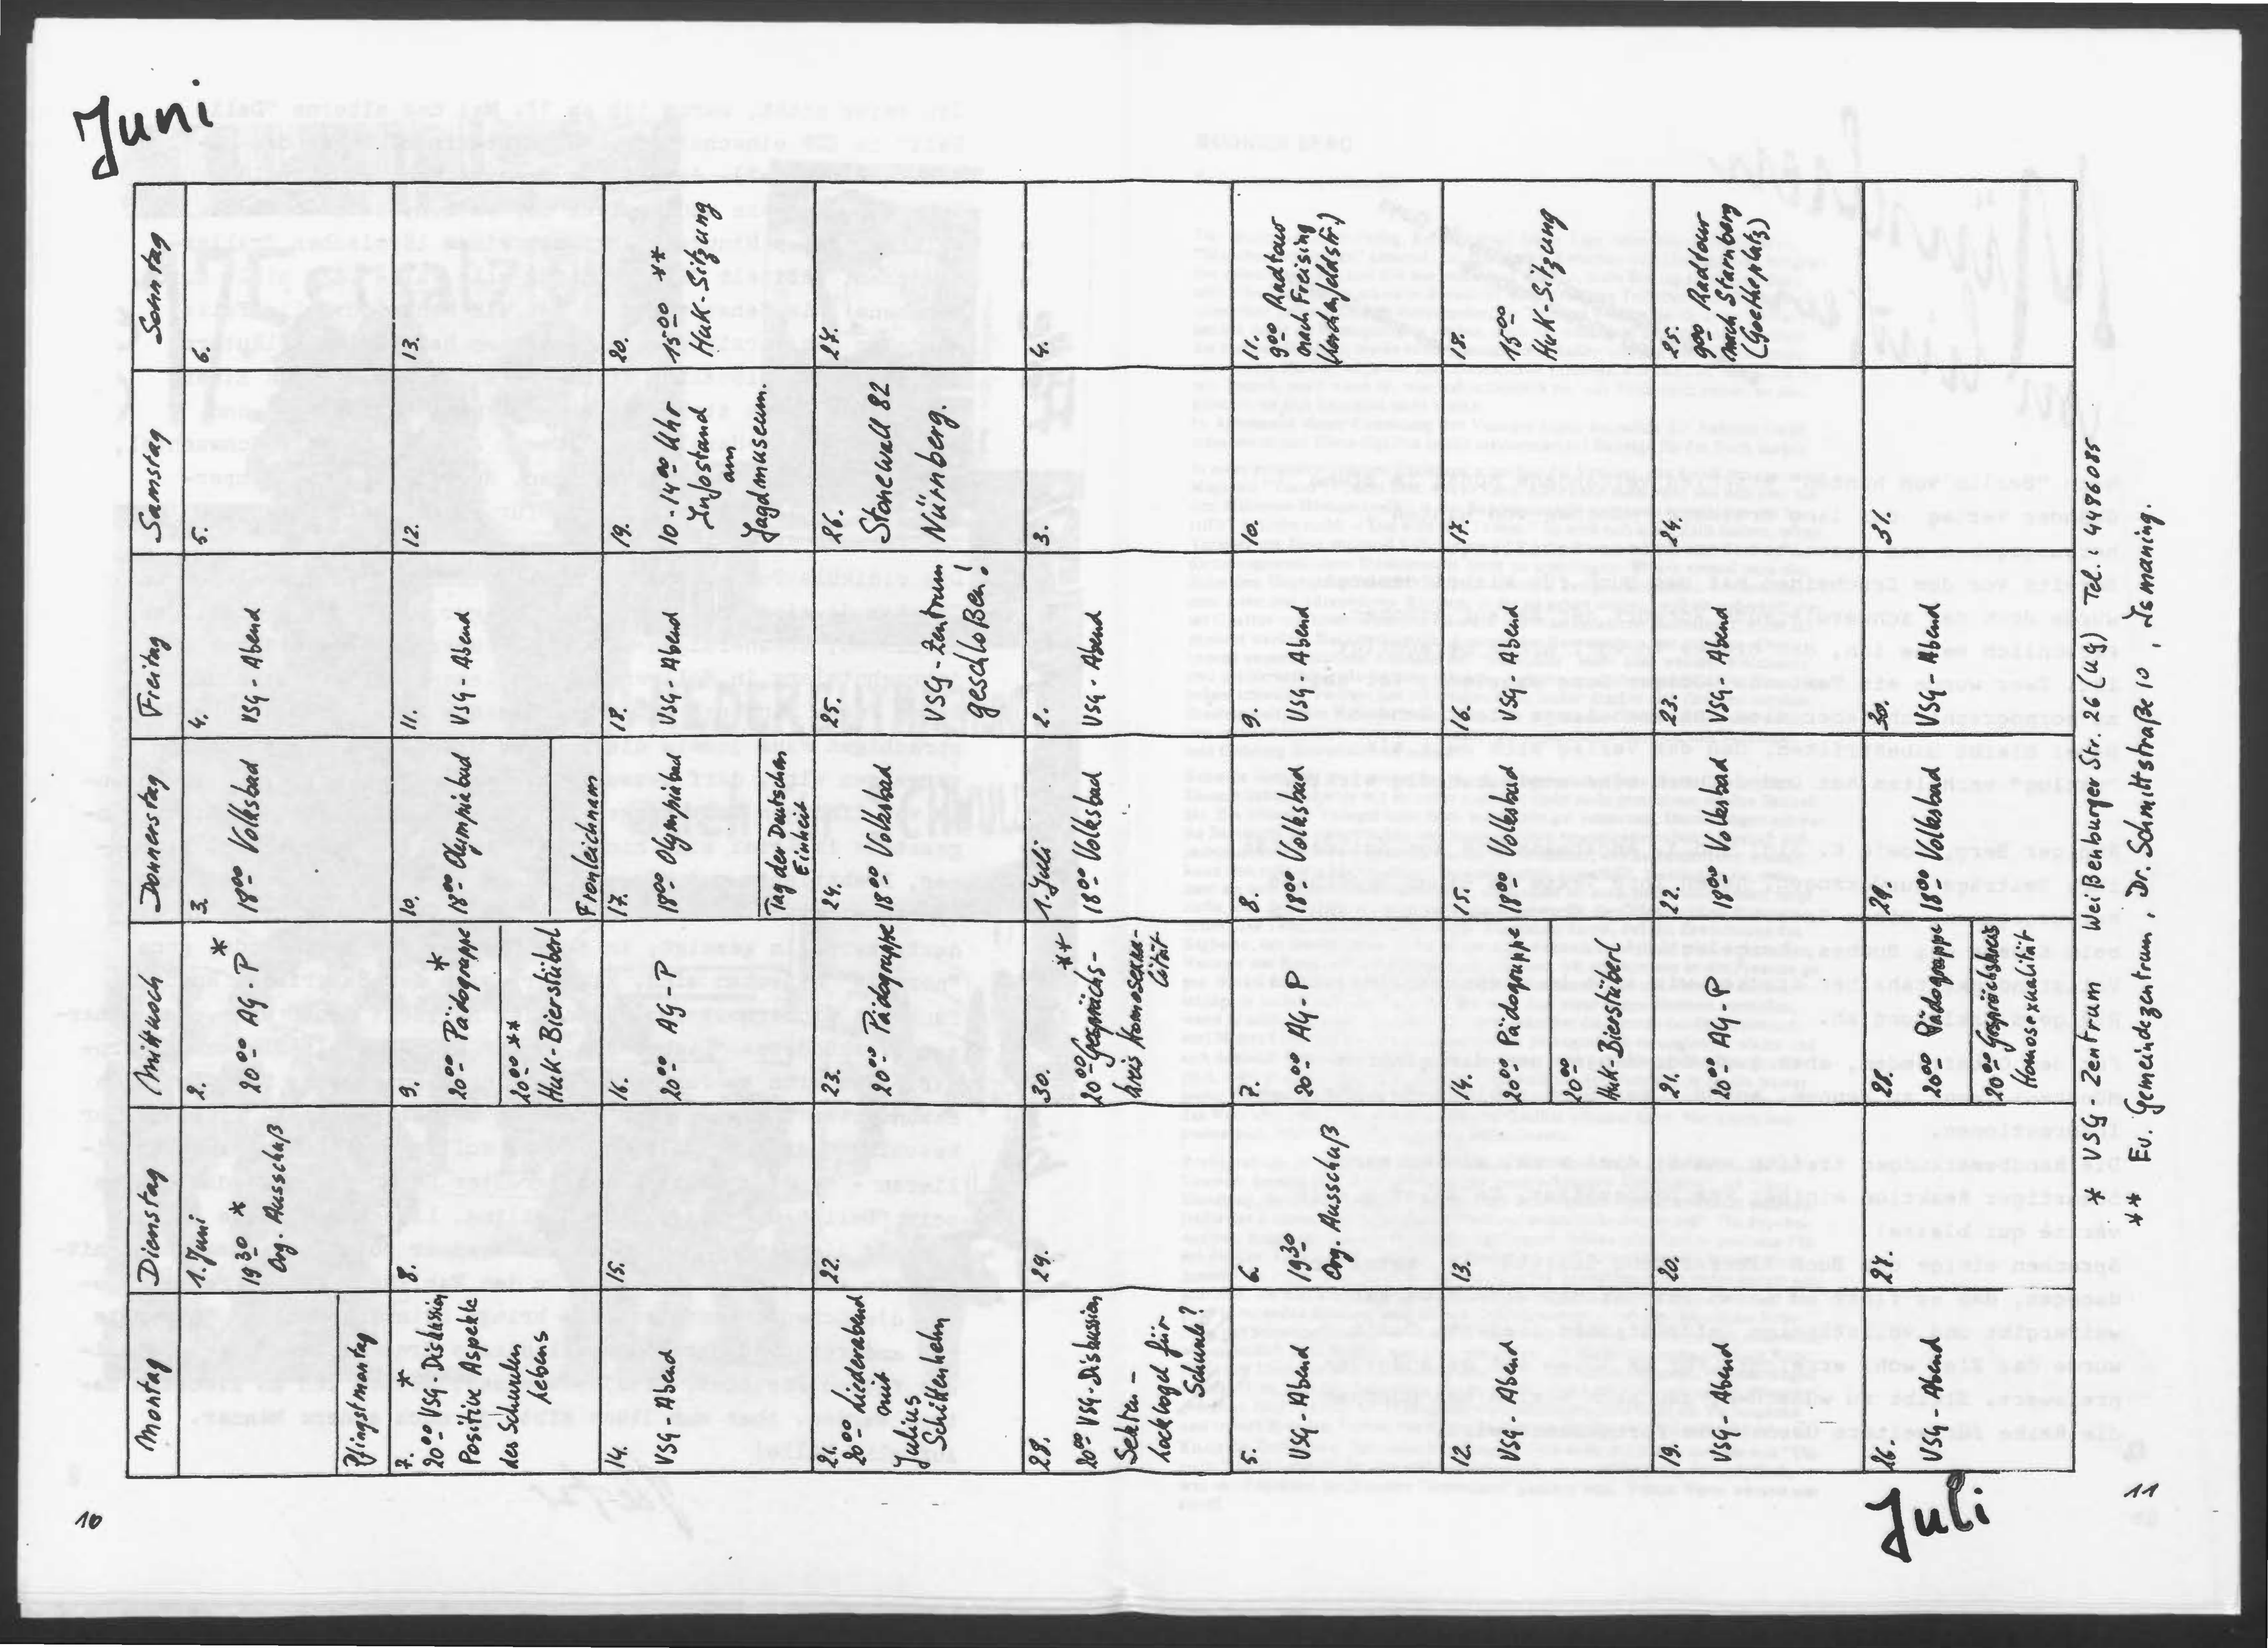 Juni
Montag
Dienstag
Mittwoch
Donnerstag
Freitag
Samstag
Sonntag
Pfingstmontag
1. Juni
19 30 *
Org. Ausschuß
2.
20 00 AG-P *
3.
18 00 Volksbad
4.
VSG-Abend
5.
6.
7. *
20 00 VSG-Diskussion
Positive Aspekte
des Schwulen
Lebens
8.
9.
20 00 Pädogruppe *
20 00 **
HuK-Bierstüberl
10.
18 00 Olympiabad
Fronleichnam
11.
VSG-Abend
12.
13.
14.
VSG-Abend
15.
16.
20 00 AG-P
17.
18 00 Olympiabad
Tag der Deutschen
Einheit
18.
VSG-Abend
19.
10-14 00 Uhr
Infostand
am
Jagdmuseum.
20.
15 00 **
HuK-Sitzung
21.
20 00 Liederabend
mit
Julius
Schittenhelm
22.
23.
20 00 Pädogruppe
24.
18 00 Volksbad
25.
VSG-Zentrum
geschloßen!
26.
Stonewall 82
Nürnberg.
27.
28.
20 00 VSG-Diskussion
Sekten -
Lockvogel für
Schwule?
29.
30. **
20 00 Gesprächs-
kreis Homosexua-
lität
1. Juli
18 00 Volksbad
2.
VSG-Abend
3.
4.
5.
VSG-Abend
6.
19 30
Org. Ausschuß
7.
20 00 AG-P
8.
18 00 Volksbad
9.
VSG-Abend
10.
11.
9 00 Radtour
nach Freising
12.
VSG-Abend
13.
14.
20 00 Pädogruppe
20 00
HuK-Bierstüberl
15.
18 00 Volksbad
16.
VSG-Abend
17.
18.
15 00
HuK-Sitzung
19.
VSG-Abend
20.
21.
20 00 AG-P
22.
18 00 Volksbad
23.
VSG-Abend
24.
25.
9 00 Radtour
nach Starnberg
(Goetheplatz)
26.
VSG-Abend
27.
28.
20 00 Pädogruppe
20 00 Gesprächskreis
Homosexualität
29.
18 00 Volksbad
30.
VSG-Abend
31.
* VSG Zentrum Weißenburger Str. 26 (UG) Tel.: 4486085
** Ev. Gemeindezentrum, Dr. Schmittstraße 10, Ismaning.
Juli
10
11